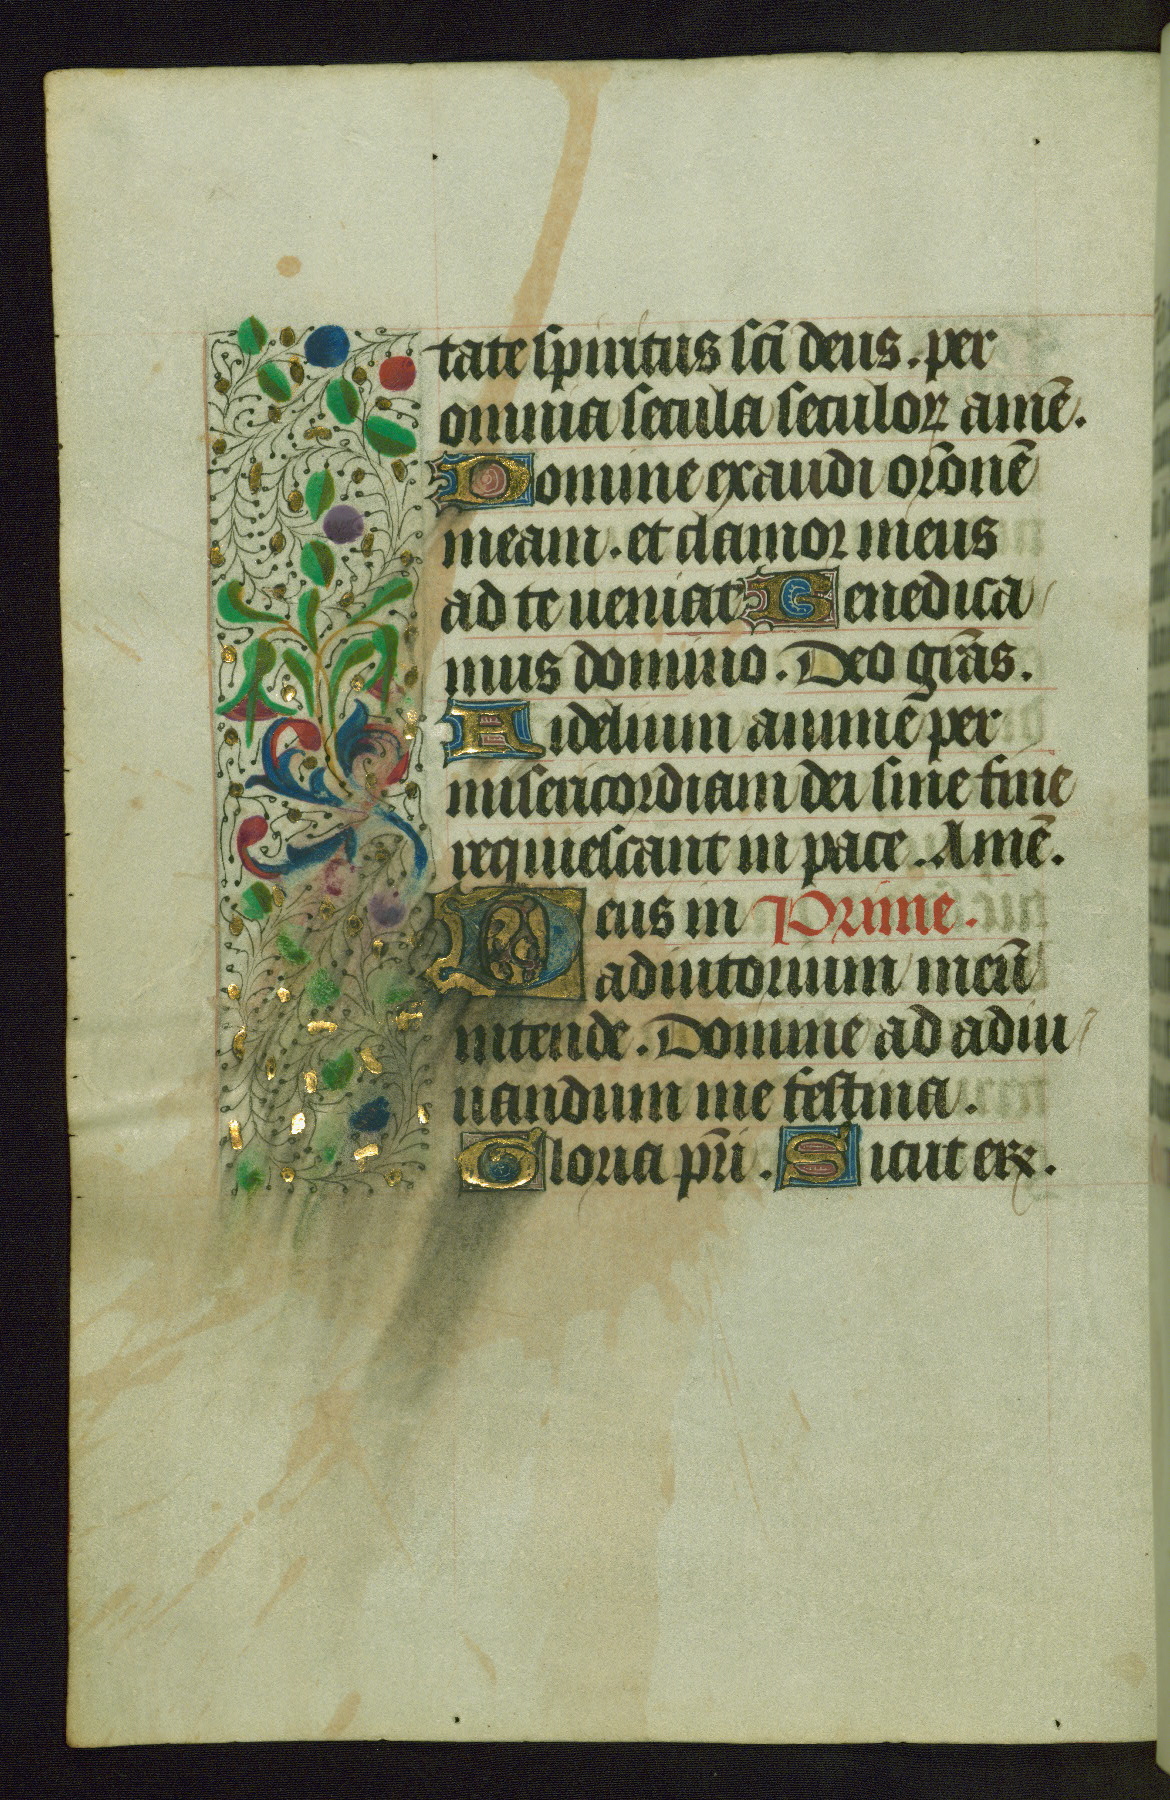 tate spiritus scī deus . per
omnia secula seculoꝝ amē .
Domine exaudi orōnē
meam . et clamor meus
ad te ueniat Benedica
mus domino . Deo grās .
Fidelium anime per
misericordiam dei sine fine
requiescant in pace . Amē .
Deus in Prime .
adiutorium meū
intende . Domine ad adiu
uandum me festina .
Gloria pr̄i . Sicut erꝭ .